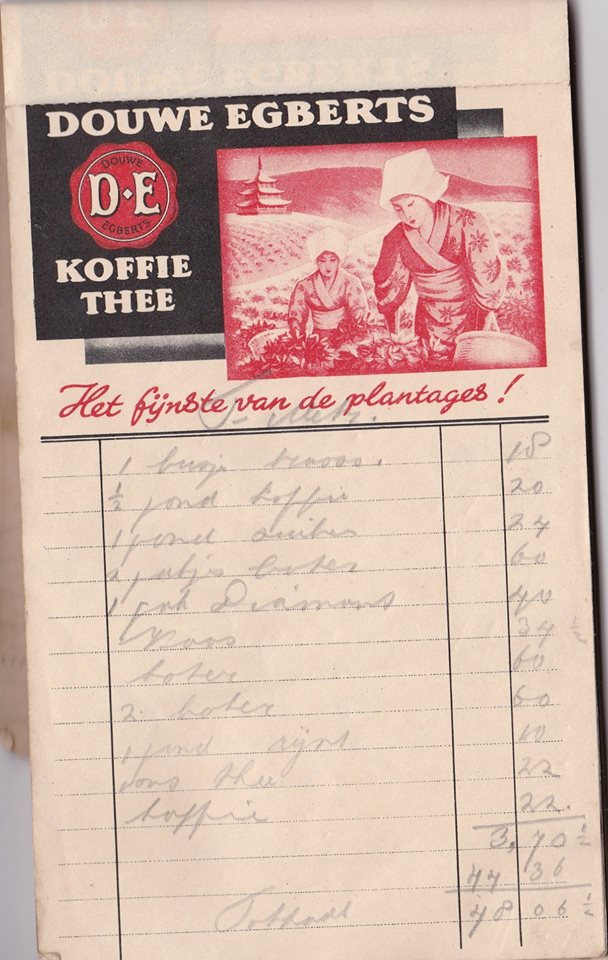 DOUWE EGBERTS
DOUWE
D·E
EGBERTS
KOFFIE
THEE
Het fijnste van de plantages!
1 busje 18
½ pond koffie 20
1 pond suiker 24
2 boter 60
1 pak Diamant 40
34
boter 60
2 boter 60
1 pond rijst 10
ons thee 22
koffie 22.
3,70
44 36
48 06